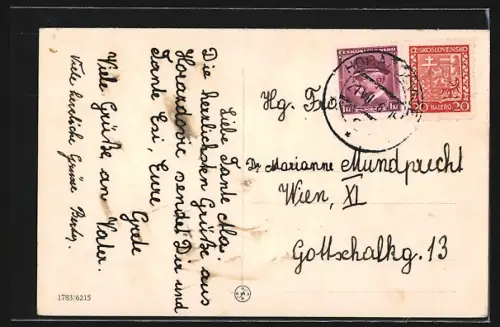 Liebe Tante Ala.
Die herrlichsten Grüße aus
sendet Dir und
Tante Esi, Eure
Grede
Viele Grüße an Vater.
Viele herzliche Grüsse
1783/6215
ČESKOSLOVENSKO
ČESKOSLOVENSKO
20 HALÉŘŮ 20
Hg. Frau
Dr. Marianne Mundprecht
Wien, XI
Gottschalkg. 13